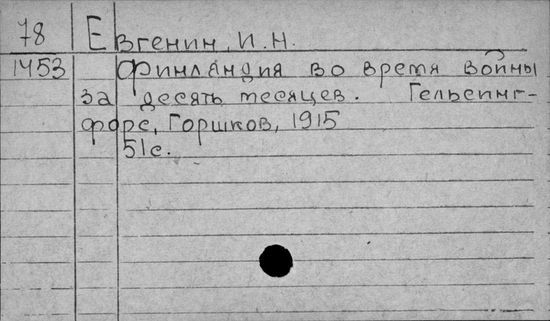 78 Евгенин, И.Н.
1453 Финляндия во время войны
за десять месяцев. Гельсинг-
форс, Горшков, 1915
51с.